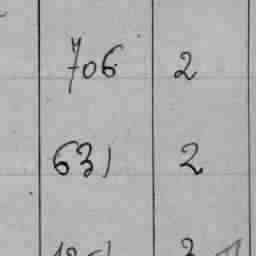 706 2
631 2